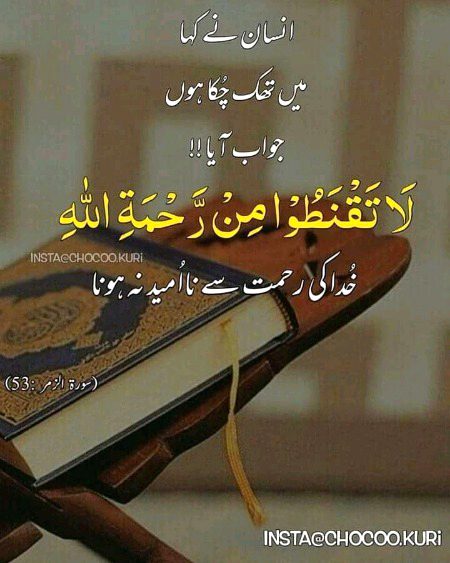 انسان نے کہا
میں تھک چُکا ہوں
جواب آیا !!
لَا تَقْنَطُوْا مِنْ رَّحْمَةِ اللّٰهِ
INSTA@CHOCOO.KURi
خُدا کی رحمت سے نااُمید نہ ہونا
(سورۃ الزمر :53)
INSTA@CHOCOO.KURi